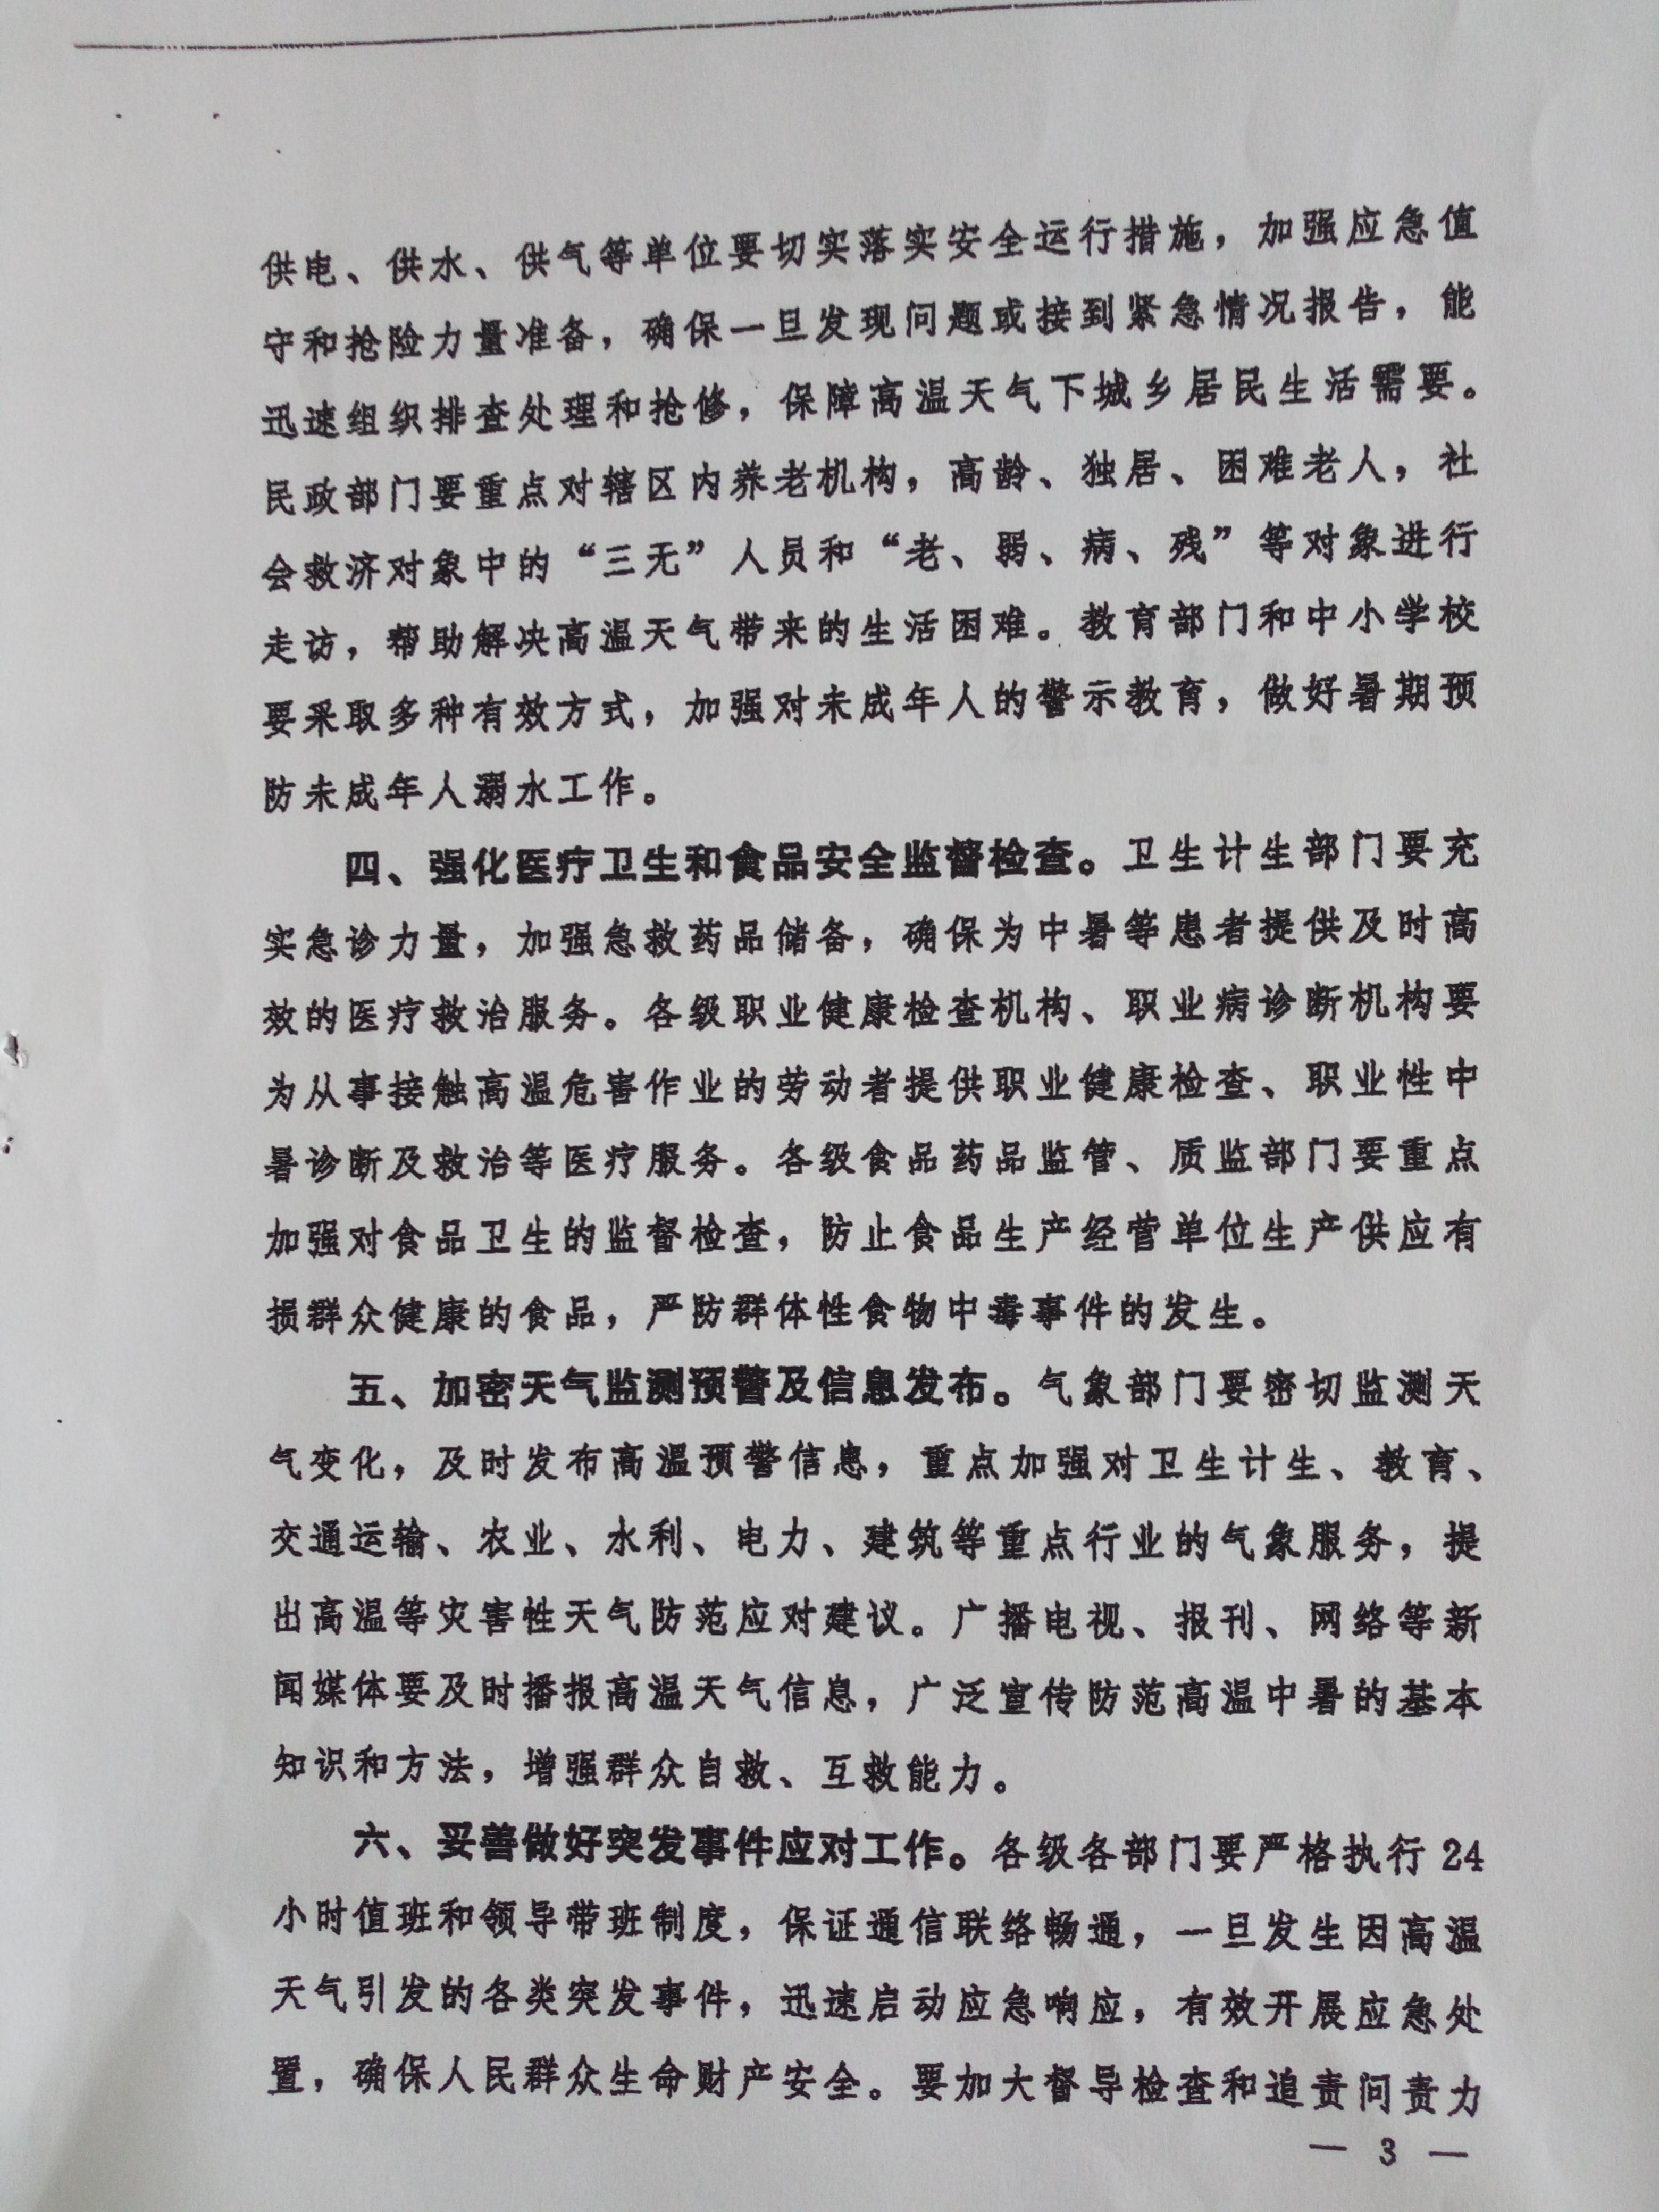 供电、供水、供气等单位要切实落实安全运行措施，加强应急值
守和抢险力量准备，确保一旦发现问题或接到紧急情况报告，能
迅速组织排查处理和抢修，保障高温天气下城乡居民生活需要。
民政部门要重点对辖区内养老机构，高龄、独居、困难老人，社
会救济对象中的“三无”人员和“老、弱、病、残”等对象进行
走访，帮助解决高温天气带来的生活困难。教育部门和中小学校
要采取多种有效方式，加强对未成年人的警示教育，做好暑期预
防未成年人溺水工作。
四、强化医疗卫生和食品安全监督检查。卫生计生部门要充
实急诊力量，加强急救药品储备，确保为中暑等患者提供及时高
效的医疗救治服务。各级职业健康检查机构、职业病诊断机构要
为从事接触高温危害作业的劳动者提供职业健康检查、职业性中
暑诊断及救治等医疗服务。各级食品药品监管、质监部门要重点
加强对食品卫生的监督检查，防止食品生产经营单位生产供应有
损群众健康的食品，严防群体性食物中毒事件的发生。
五、加密天气监测预警及信息发布。气象部门要密切监测天
气变化，及时发布高温预警信息，重点加强对卫生计生、教育、
交通运输、农业、水利、电力、建筑等重点行业的气象服务，提
出高温等灾害性天气防范应对建议。广播电视、报刊、网络等新
闻媒体要及时播报高温天气信息，广泛宣传防范高温中暑的基本
知识和方法，增强群众自救、互救能力。
六、妥善做好突发事件应对工作。各级各部门要严格执行 24
小时值班和领导带班制度，保证通信联络畅通，一旦发生因高温
天气引发的各类突发事件，迅速启动应急响应，有效开展应急处
置，确保人民群众生命财产安全。要加大督导检查和追责问责力
— 3 —